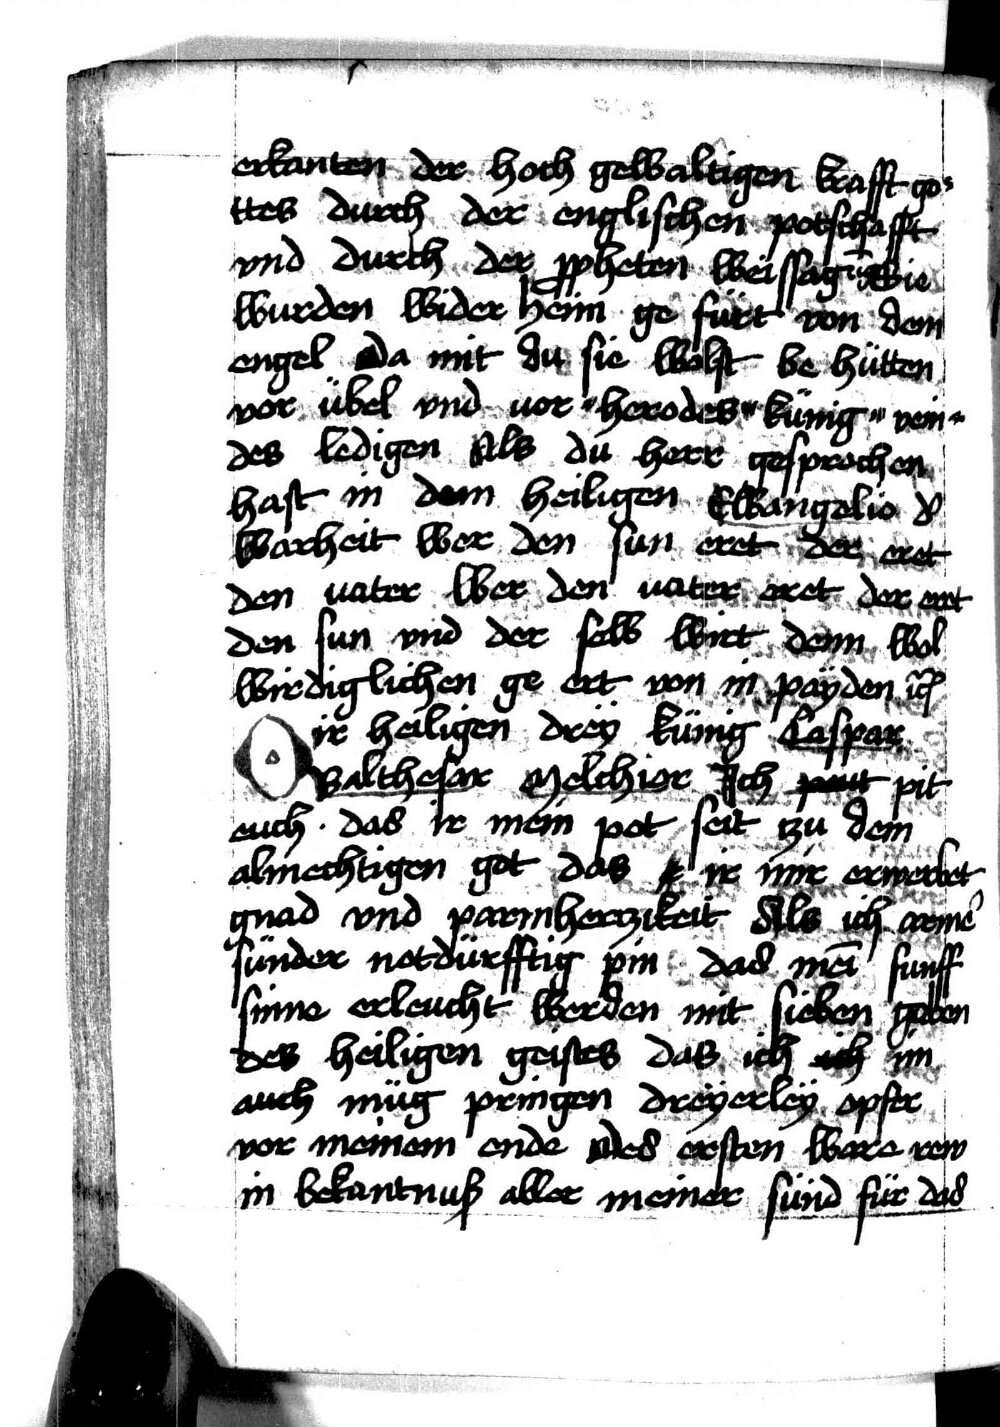 erkanten der hoch gewaltigen krafft go⸗
ttes durch der englischen potschafft
vnd durch der ppheten weissagūg Sie
wurden wider heim ge fürt von dem
engel Da mit du sie wolst be hütten
vor übel vnd vor herodes künig vein⸗
des ledigen Als du herr gesprochen
hast in dem heiligen Ewangelio d̕
warheit wer den sun eret der eret
den vater wer den vater eret der eret
den sun vnd der selb wirt denn wol
wirdiglichen ge ert von in payden
O ir heiligen dreÿ künig Caspar
Balthesar Melchior Ich pit
euch · das ir mein pot seit zu dem
almechtigen got das ir mir erwerbet
gnad vnd parmherczikeit Als ich arme᷑
sünder notdürfftig pin das mēi funff
sinne erleucht werden mit sieben geben
des heiligen geistes das ich im
auch müg pringen dreÿerleÿ opfer
vor meinem ende Des ersten ware rew
in bekantnuß aller meiner sünd für das